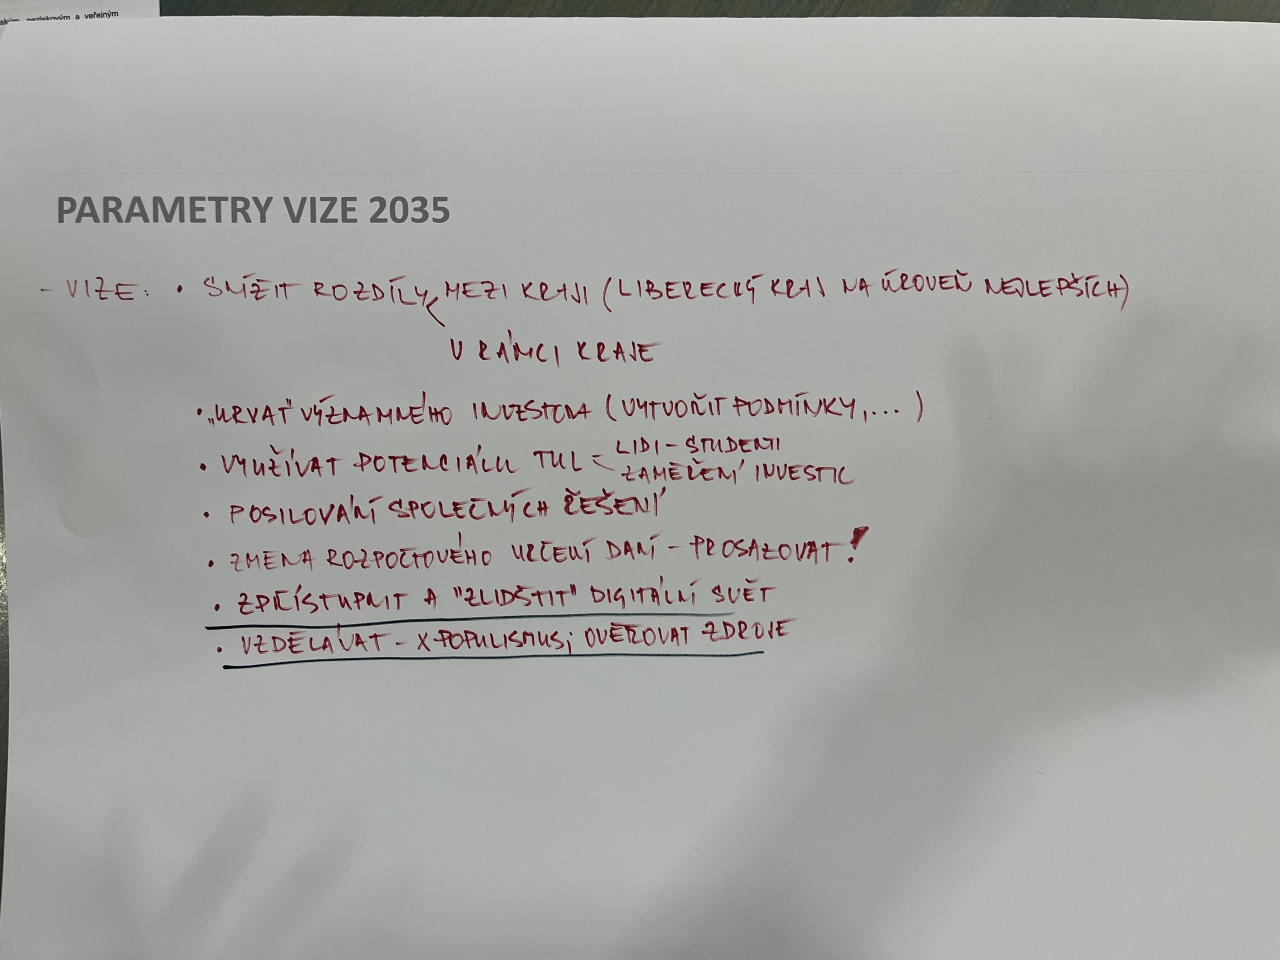 neziskovým a veřejným
PARAMETRY VIZE 2035
- VIZE: • SNÍŽIT ROZDÍLY MEZI KRAJI (LIBERECKÝ KRAJ NA ÚROVEŇ NEJLEPŠÍCH)
V RÁMCI KRAJE
• „URVAT" VÝZNAMNÉHO INVESTORA (VYTVOŘIT PODMÍNKY,...)
• VYUŽÍVAT POTENCIÁLU TUL - LIDI - STUDENTI
ZAMĚŘENÍ INVESTIC
• POSILOVÁNÍ SPOLEČNÝCH ŘEŠENÍ
• ZMĚNA ROZPOČTOVÉHO URČENÍ DANÍ - PROSAZOVAT!
• ZPŘÍSTUPNIT A "ZLIDŠTIT" DIGITÁLNÍ SVĚT
• VZDĚLÁVAT - X POPULISMUS; OVĚŘOVAT ZDROJE